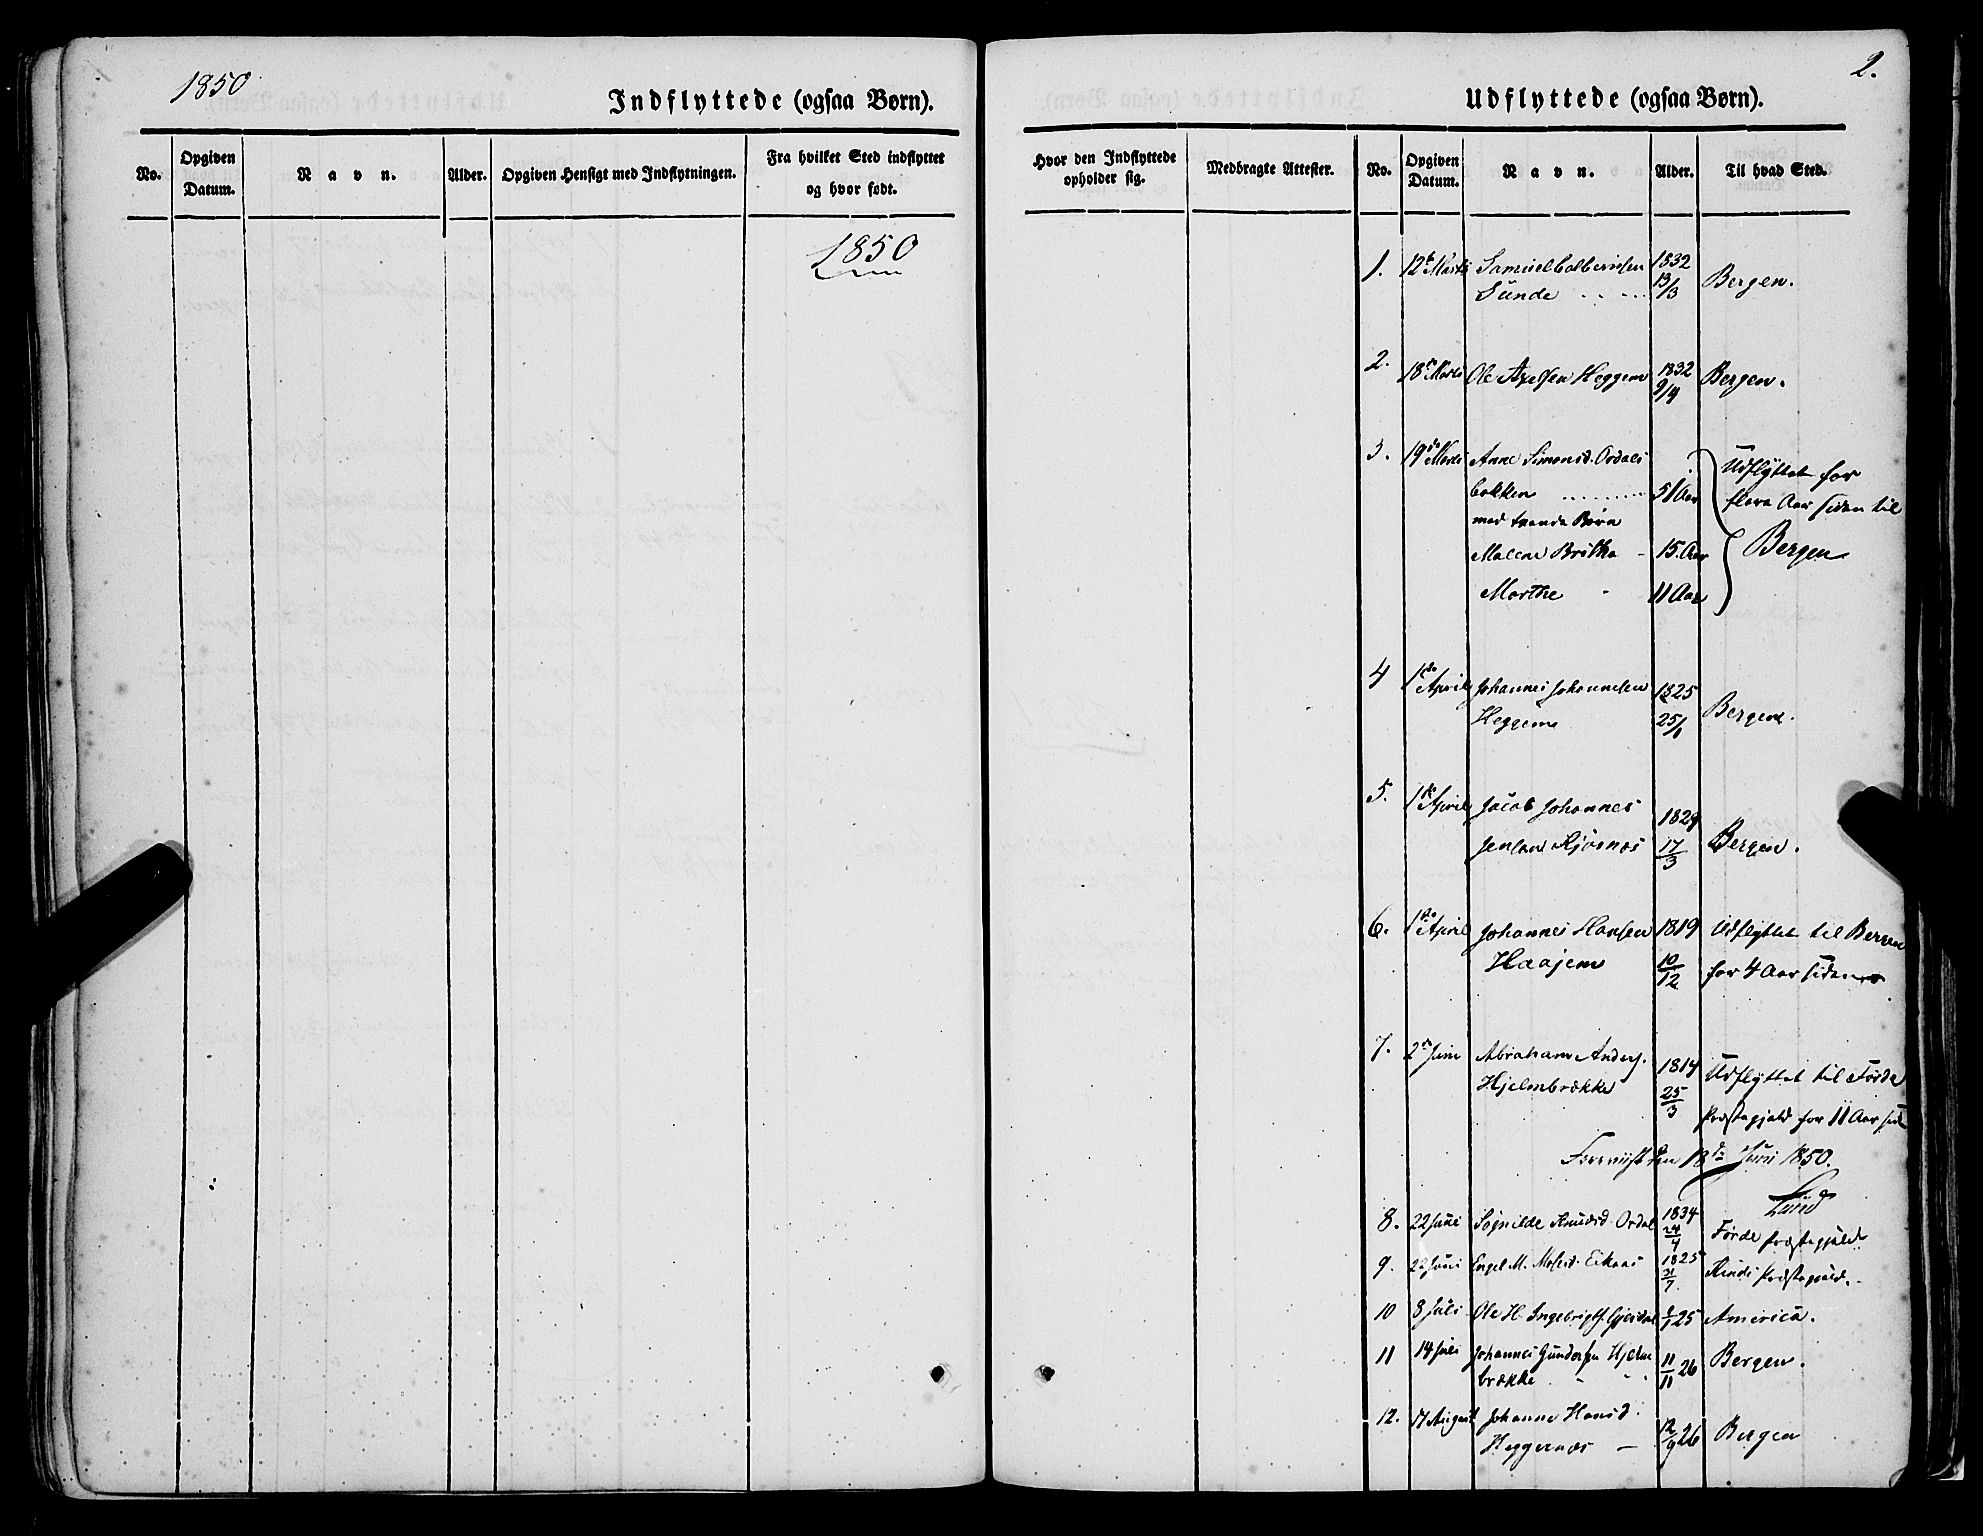 1850
2.
Indflyttede (ogsaa Børn).
Udflyttede (ogsaa Børn).
No.
Opgiven Datum.
Navn.
Alder.
Opgiven Hensigt med Indflytningen.
Fra hvilket Sted indflyttet og hvor født.
Hvor den Indflyttede opholder sig.
Medbragte Attester.
No.
Opgiven Datum.
Navn.
Alder.
Til hvad Sted.
1850
1. 12te Marts Samuel Colbernsen 1832
Sunde 13/3 Bergen.
2. 18de Marts Ole Axelsen Heggem 1832 9/4 Bergen.
3. 19de Marts Anne Simonsd. Ordals
bakken 51 Aar
med tvende Børn
Malene Britha 15 Aar
Marthe 11 Aar
Udflyttet for
flere Aar siden til
Bergen
4 1ste April Johannes Johannesen 1825
Heggem 25/1 Bergen.
5. 1ste April Jacob Johannes
Jensen Kjøsnæs 1829 17/3 Bergen.
6. 1ste April Johannes Hansen 1819 Udflyttet til Bergen
Haajem 10/12 for 4 Aar siden
7. 2den Juni Abraham Anders. 1814 Udflyttet til Førde
Hjelmbrække 25/3 Præstegjeld for 11 Aar sid
Foreviist den 18de Juni 1850.
Lund
8. 22 Juni Knudsd. Ordal 1834 24/4 Førde Præstegjeld
9. 22 Juni Engel M. Mosesd. Eikaas 1825 31/7 Kinds Præstegjeld.
10 8 Juli Ole H. Ingebrigts. Gjesdal 25 America.
11 14 Juli Johannes Gundersen Hjelm
brække 11/11 26 Bergen.
12. 17 August Johanne Hansd.
Heggernæs 12/9 26 Bergen